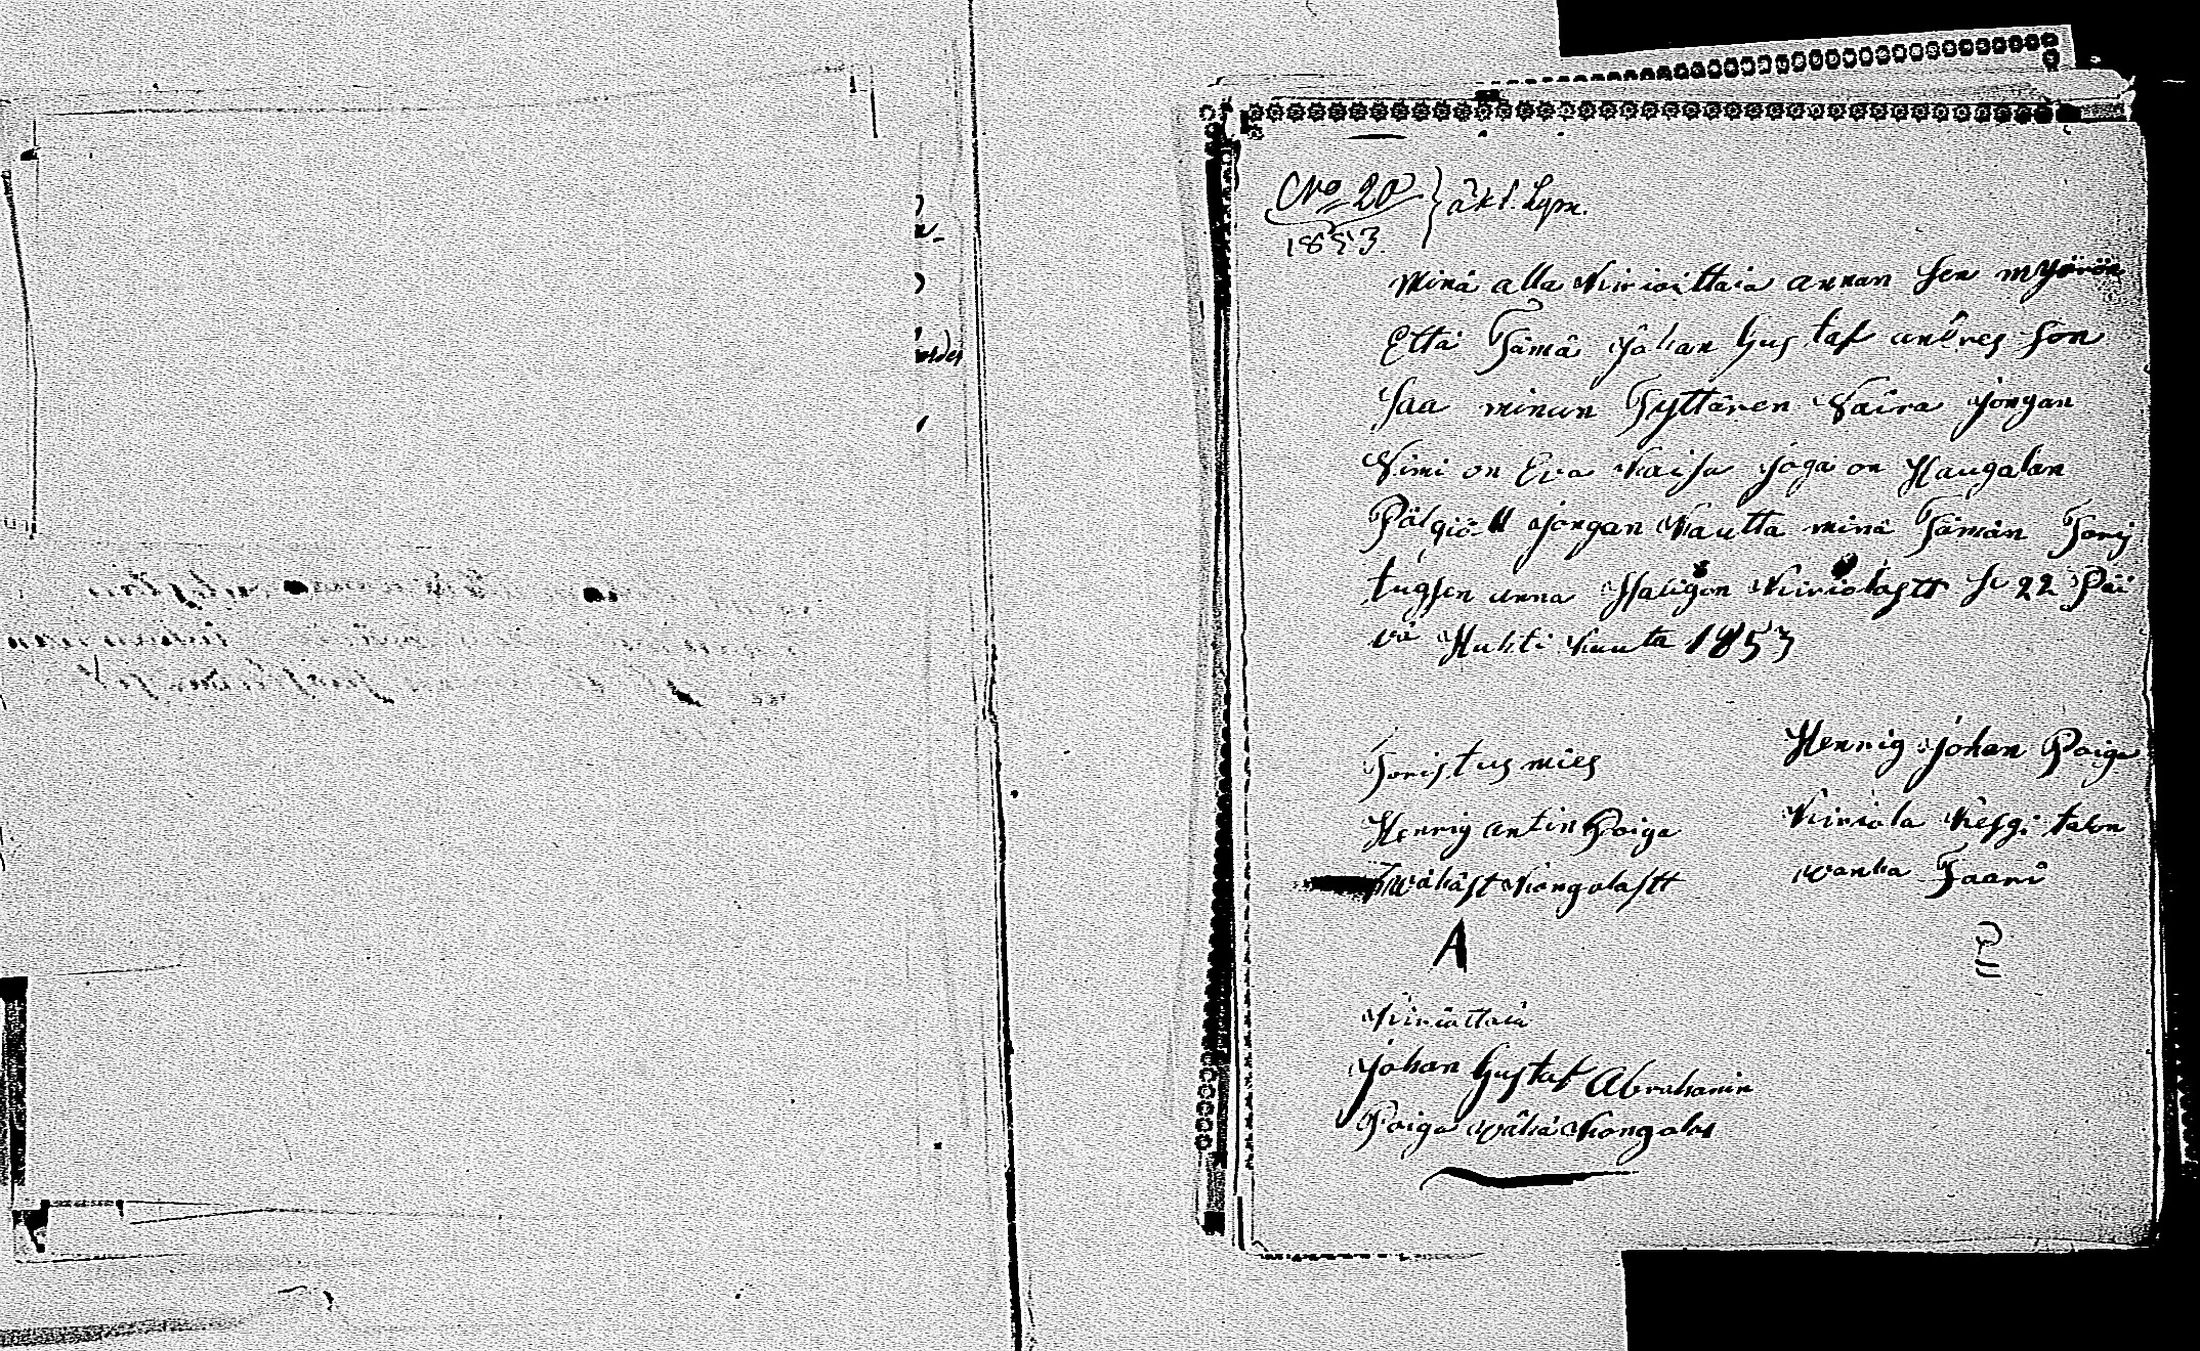 No 20 } äkt. Lysn.
1853
Minä alla Kirioittaia annan sen myörön
Että Tämä Johan Gustaf andres son
Saa minun Tyttären Kaira jongan
Nimi on Eva Kaisa joga on Haugalan
Palgiolt jongan Kautta minä Tämän Torij
tugsen anna Haugon Kiriolastt se 22 Päi
vä Huhti kuuta 1853
Toristus mies
Henrig antin Poiga
wähäst Kongolastt
A
Henrig johan Poiga
Kiriola Kesgi talon
wanha Faari
Kirioittaia
johan Gustaf Abrahamin
Poiga wähä Kongolas